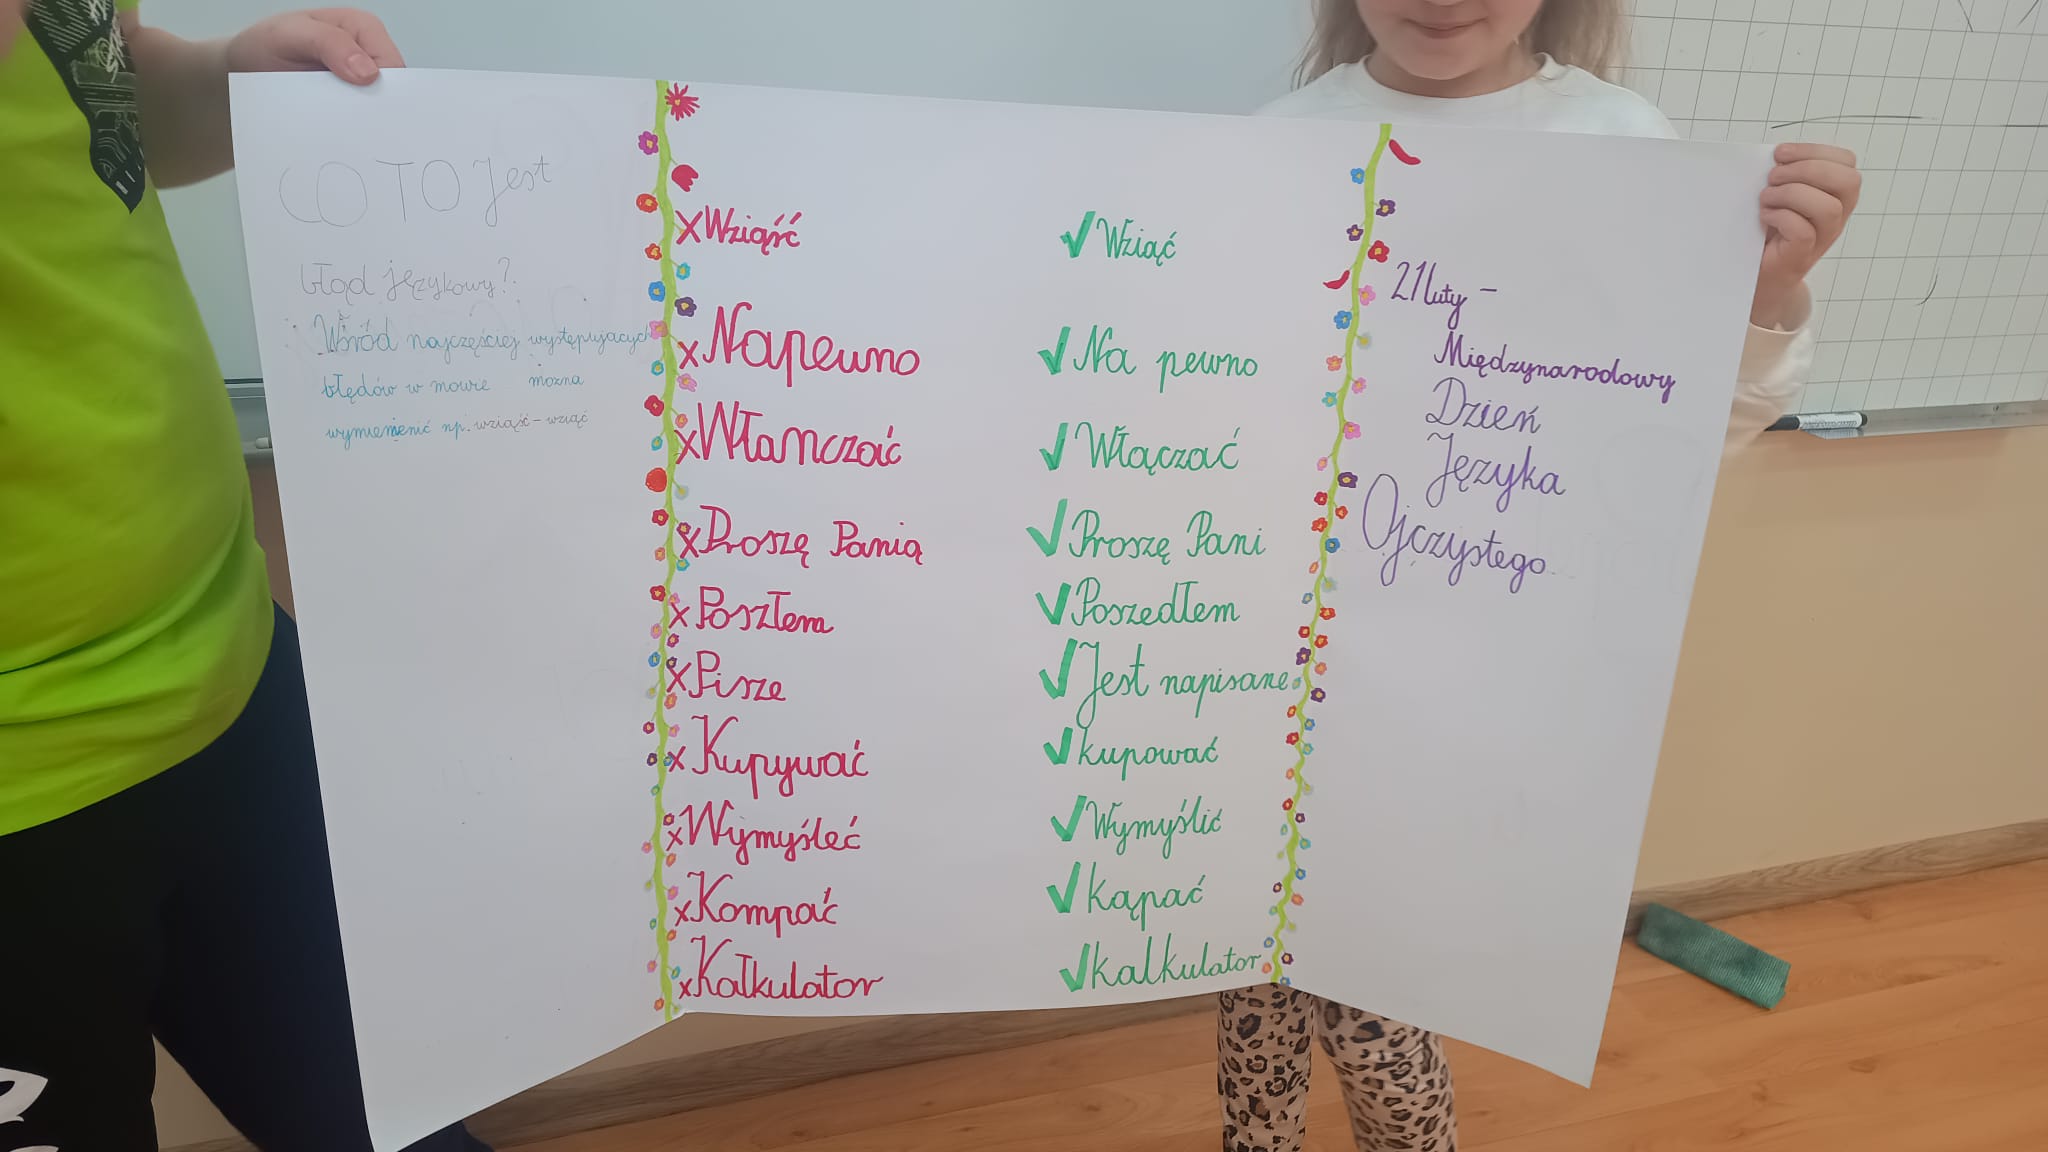 CO TO Jest
błąd językowy?
Wśród najczęściej występujących
błędów w mowie można
wymienić np. wziąść - wziąć
X Wziąść
X Napewno
X Włanczać
X Proszę Panią
X Poszłem
X Pisze
X Kupywać
X Wymyśleć
X Kompać
X Kałkulator
✓ Wziąć
✓ Na pewno
✓ Włączać
✓ Proszę Pani
✓ Poszedłem
✓ Jest napisane
✓ kupować
✓ Wymyślić
✓ kąpać
✓ kalkulator
21 luty -
Międzynarodowy
Dzień
Języka
Ojczystego